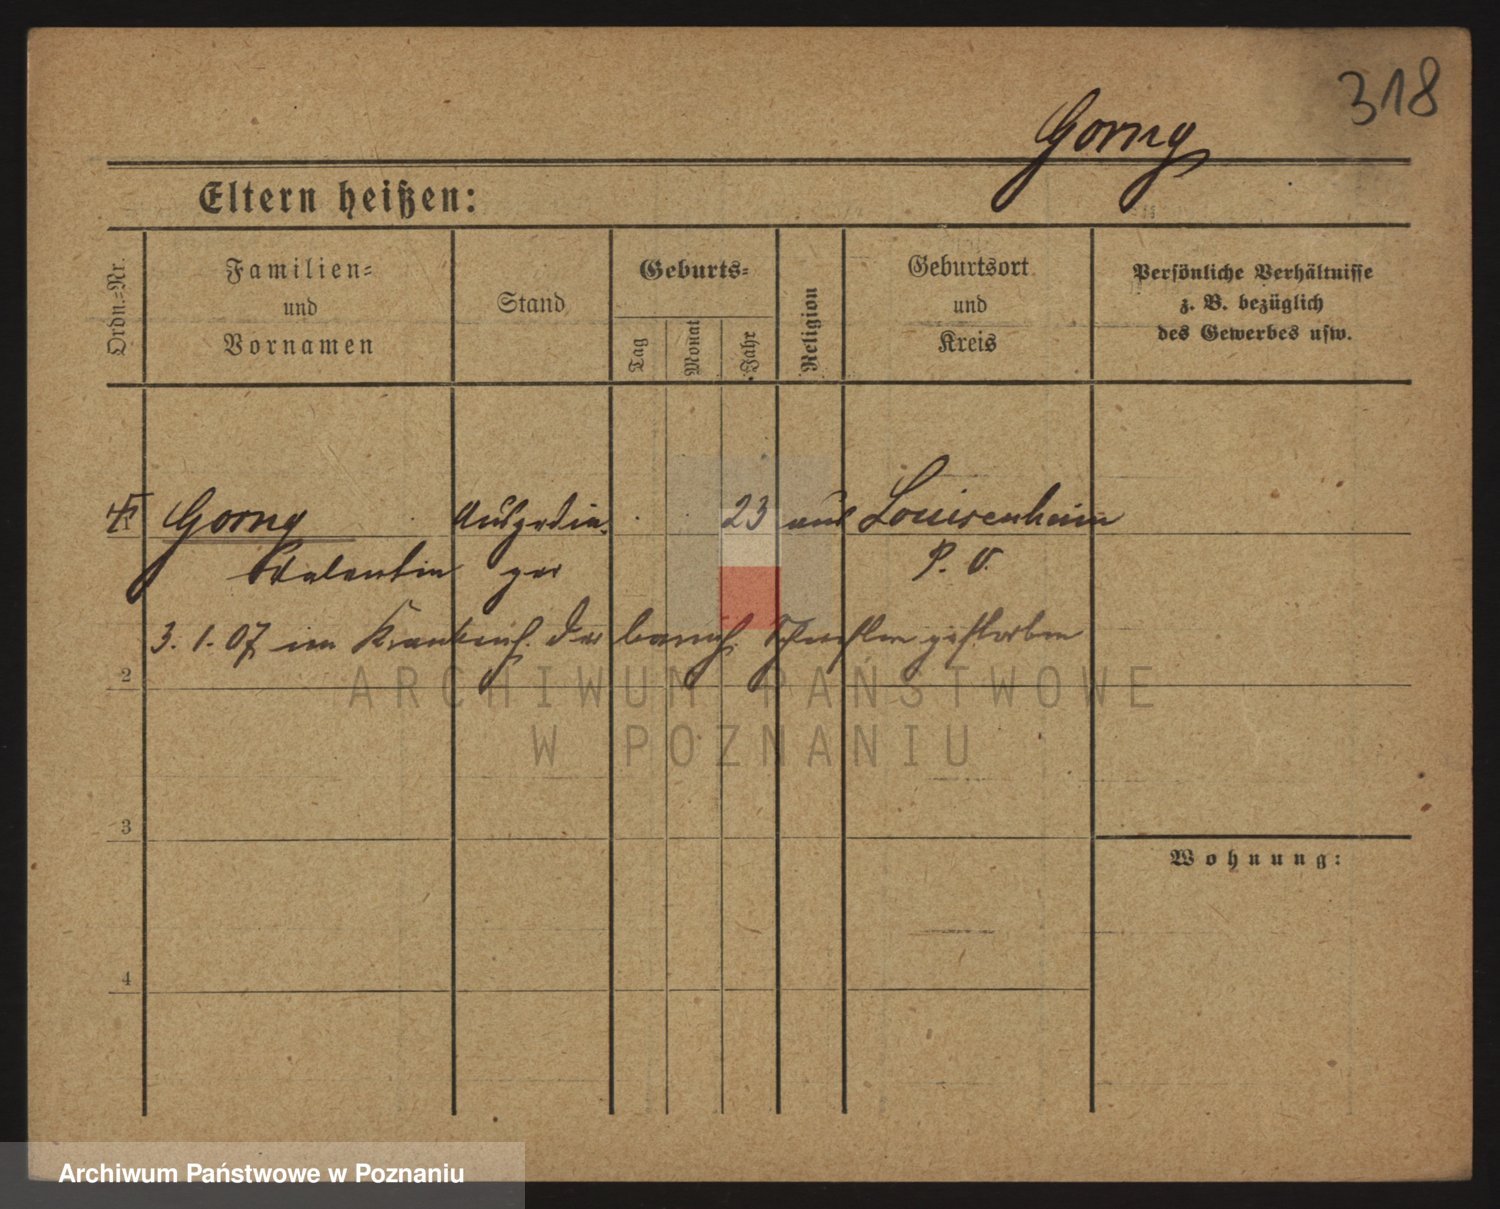 318
Gorny
Eltern heißen:
Ordn.=Nr.
Familien=
und
Vornamen
Stand
Geburts=
Tag
Monat
Jahr
Religion
Geburtsort
und
Kreis
Persönliche Verhältnisse
z. B. bezüglich
des Gewerbes usw.
Gorny
Ausgedin-
23
aus
Louisenhain
Valentin
ger
P. O.
3. 1. 07 im Krankenh. der barmh. Schwestern gestorben
2
3
4
Wohnung:
ARCHIWUM PAŃSTWOWE
W POZNANIU
Archiwum Państwowe w Poznaniu